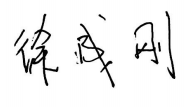 徐成刚